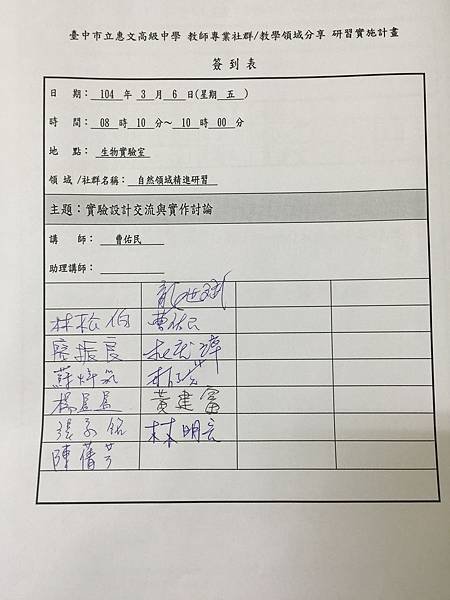 臺中市立惠文高級中學 教師專業社群/教學領域分享 研習實施計畫
簽到表
日 期： 104 年 3 月 6 日(星期 五 )
時 間： 08 時 10 分～ 10 時 00 分
地 點： 生物實驗室
領域/社群名稱： 自然領域精進研習
主題：實驗設計交流與實作討論
講 師： 曹佑民
助理講師：
林松伯 曹佑民
廖振良
黃建富
張子銘 林明宏
陳菁芳